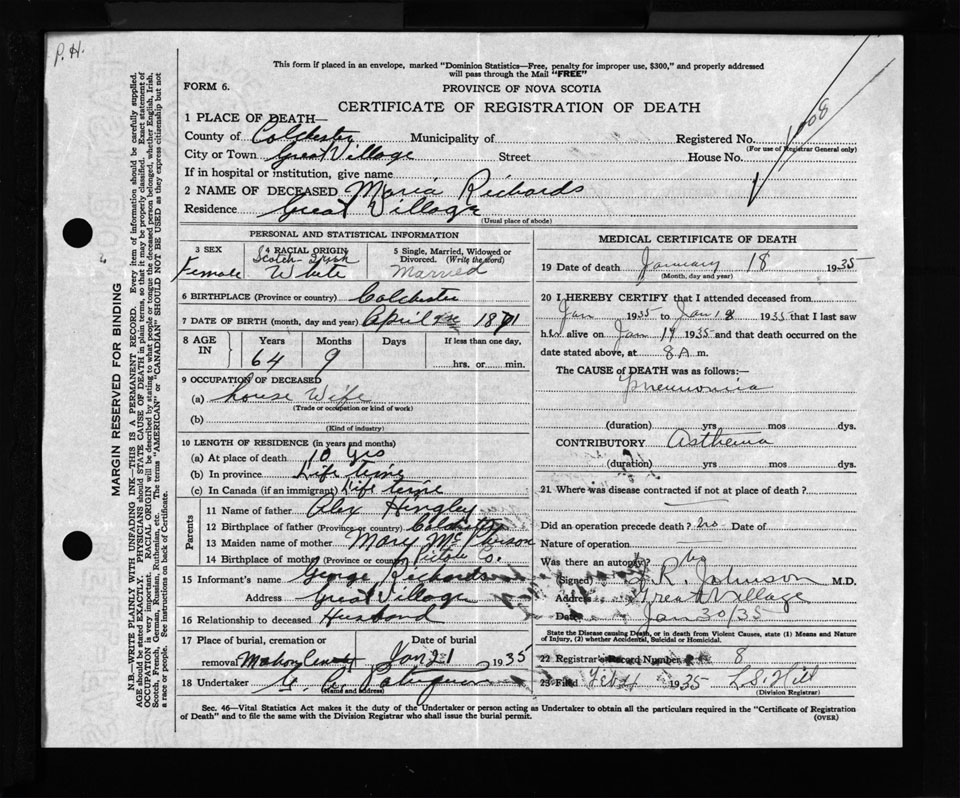 P. H.
This form if placed in an envelope, marked "Dominion Statistics—Free, penalty for improper use, $300," and properly addressed
will pass through the Mail "FREE"
FORM 6.
PROVINCE OF NOVA SCOTIA
CERTIFICATE OF REGISTRATION OF DEATH
1 PLACE OF DEATH—
County of Colchester Municipality of Registered No.
(For use of Registrar General only)
City or Town Great Village Street House No.
If in hospital or institution, give name
2 NAME OF DECEASED Maria Richards
Residence Great Village
(Usual place of abode)
MARGIN RESERVED FOR BINDING
N.B.—WRITE PLAINLY WITH UNFADING INK—THIS IS A PERMANENT RECORD. Every item of information should be carefully supplied.
AGE should be stated EXACTLY. PHYSICIANS should STATE CAUSE OF DEATH in plain terms, so that it may be properly classified. Exact statement of
OCCUPATION is very important. RACIAL ORIGIN will be described by stating to what people or tongue the deceased person belonged, whether English, Irish,
Scotch, French, German, Russian, Ruthenian, etc. The terms "AMERICAN" or "CANADIAN" SHOULD NOT BE USED as they express citizenship but not
a race or people. See instructions on back of Certificate.
PERSONAL AND STATISTICAL INFORMATION
3 SEX
Female
4 RACIAL ORIGIN
Scotch-Irish
White
5 Single, Married, Widowed or
Divorced. (Write the word)
Married
6 BIRTHPLACE (Province or country) Colchester
7 DATE OF BIRTH (month, day and year) April 1871
8 AGE
IN
Years Months Days If less than one day,
64 9 hrs. or min.
9 OCCUPATION OF DECEASED
(a) house Wife
(Trade or occupation or kind of work)
(b)
(Kind of industry)
10 LENGTH OF RESIDENCE (in years and months)
(a) At place of death 10 Yrs
(b) In province Life time
(c) In Canada (if an immigrant) Life time
Parents
11 Name of father Alex Hingley
12 Birthplace of father (Province or country) Colchester
13 Maiden name of mother Mary McPherson
14 Birthplace of mother (Province or country) Pictou Co.
15 Informant's name George Richards
Address Great Village
16 Relationship to deceased Husband
17 Place of burial, cremation or
removal
Date of burial
Jan 21 1935
18 Undertaker
(Name and address)
MEDICAL CERTIFICATE OF DEATH
19 Date of death January 18 1935
(Month, day and year)
20 I HEREBY CERTIFY that I attended deceased from
Jan 1935 to Jan 18 1935 that I last saw
h alive on Jan 17 1935 and that death occurred on the
date stated above, at 8 A. m.
The CAUSE of DEATH was as follows:—
Pneumonia
(duration) yrs mos dys.
CONTRIBUTORY Asthma
(duration) ? yrs mos dys.
21 Where was disease contracted if not at place of death?
Did an operation precede death? no Date of
Nature of operation
Was there an autopsy? No
(Signed) R Johnson M.D.
Address Great Village
Date Jan 30/35
State the Disease causing Death, or in death from Violent Causes, state (1) Means and Nature
of Injury, (2) whether Accidental, Suicidal or Homicidal.
22 Registrar's Record Number 8
23 Filed Feb 1935 L.S. Hill
(Division Registrar)
Sec. 46—Vital Statistics Act makes it the duty of the Undertaker or person acting as Undertaker to obtain all the particulars required in the "Certificate of Registration
of Death" and to file the same with the Division Registrar who shall issue the burial permit.
(OVER)